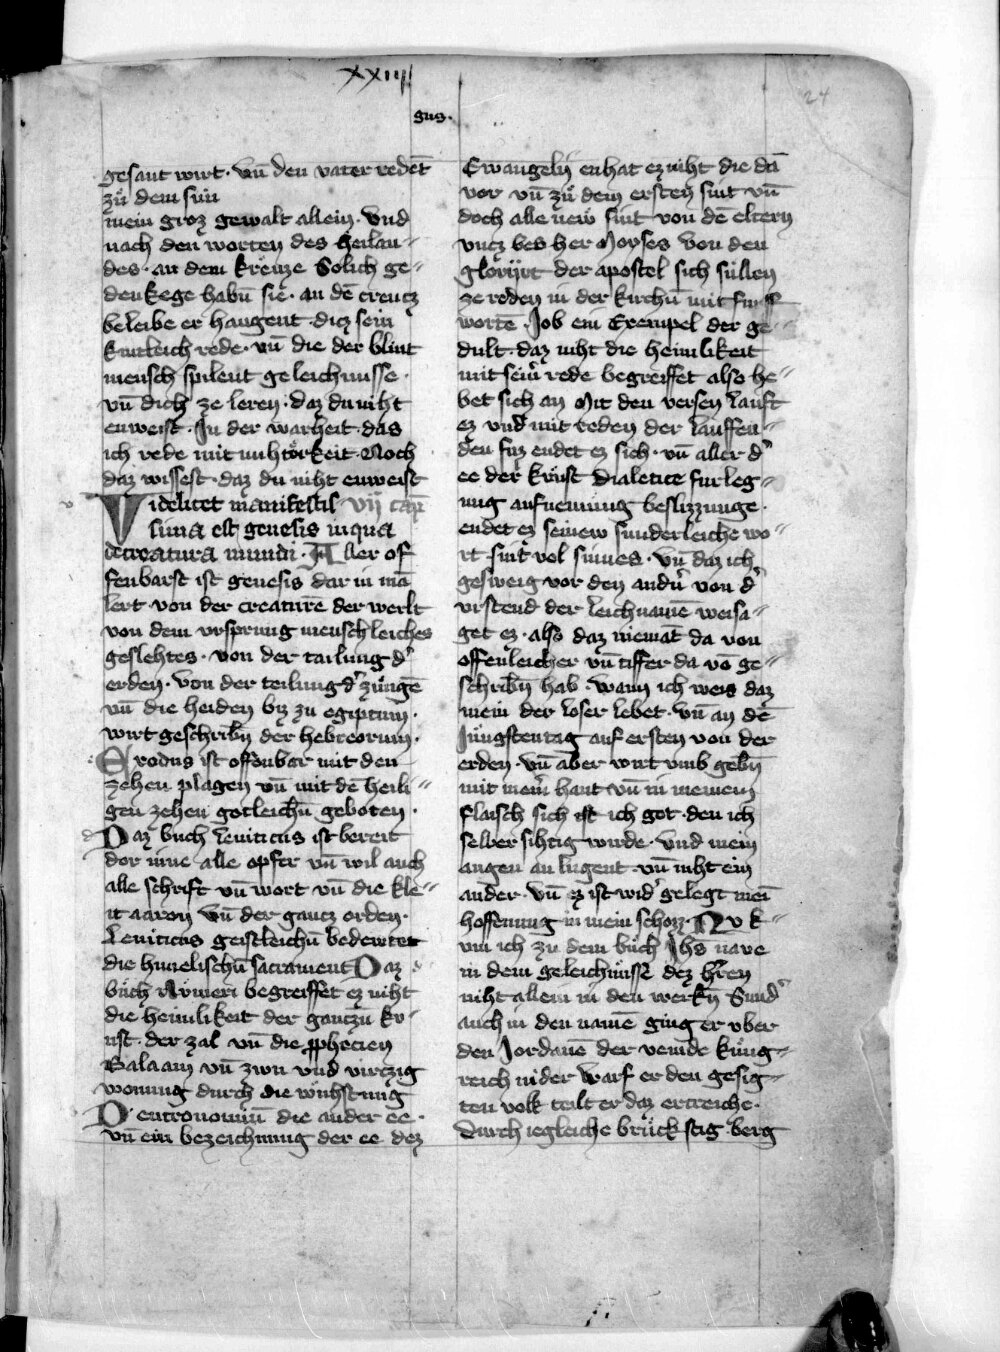 xxiiij
24
gus.
gesant wirt · vn̄ den vater redēt
zů dem sun
mein groz gewalt allein · vnd
nach den worten des heilan〃
des · an dem kreuze Solich ge〃
denkege habn̄ sie · an dē creutz
beleibe er hangent · diz sein
kintleich rede · vn̄ die der blint
mensch spilent geleichnusse ·
vn̄ dich ze leren · daz du niht
enweist · In der warheit · das
ich rede mit unhörkeit · Noch
daz wissest · daz du niht enweist
Videlicet manifestis vij cap
sima est genesis in qua
de creatura mundi · Aller of
fenbarst ist genesis dar in mā
lert von der creaturē der werlt
von dem vrsprung menschleiches
geslehtes · von der tailung d'
erden · von der teilung d' zungē
vn̄ die heiden bz zu egiptum ·
wirt geschribn̄ der hebreorum ·
Exodus ist offenbar mit den
zehen plagen vn̄ mit dē heili〃
gen zehen gotleichn̄ geboten ·
Daz buch leuiticus ist bereit
dor inne alle opfer vn̄ wil auch
alle schrift vn̄ wort vn̄ die kle〃
it aaron vn̄ der gantz orden ·
Leuiticus geistleichn̄ bedewtet
die himelischn̄ sacrament Daz
bůch Numeri begreiffet ez niht
die heimlikeit der gantzn̄ kv〃
nst · der zal vn̄ die ꝓphecien
Balaam vn̄ zwu vnd virtzig
wonung durch die wůhstung
Deutronomiū die ander ee ·
vn̄ ein bezeichnung der ee dez
Ewangelij enhat ez niht die dā
vor vn̄ zů dem ersten sint vn̄
doch alle new sint von dē eltern
vntz bes her Moyses von den
gloriirt der apostel sich süllen
ze reden in der kirchn̄ mit funff
wortē · Job ein Exempel der ge〃
dult · daz niht die heimlikeit
mit sein' rede begreiffet also he〃
bet sich an Mit den versen lauft
ez vnd mit reden der lauffen〃
den fuz endet ez sich · vn̄ aller d'
ee der kvnst dialetice furleg〃
ung aufnemung beslizzunge ·
endet ez seinew sunderleiche wo〃
rt sint vol sinnes · vn̄ daz ich
gesweig vor den andn' von d'
vrstend der leichnamē weisa〃
get ez · also daz niemāt da von
offenleicher vn̄ tiffer da vō ge〃
schribn̄ hab · wann ich weis daz
mein der loser lebet · vn̄ an dē
Jungsten tag auf ersten von der
erden · vn̄ aber wirt vmb gebn̄
mit mein' haut vn̄ in meinem
flaisch sich ist ich got · den ich
selber sihtig wirde · vnd mein
augen an lugent · vn̄ niht ein
ander · vn̄ ez ist wid' gelegt meī
hoffenung in mein schozz · Nv k〃
vm ich zu dem bůch Jhs naue
in dem geleichnüsse dez h'ren
niht allein in den werkn̄ Sund'
auch in den namē ging er vber
den Jordanē der veinde kung〃
reich nider warf er den gesig〃
ten volk teilt er daz ertreiche ·
Durch iegleiche brück stig berg